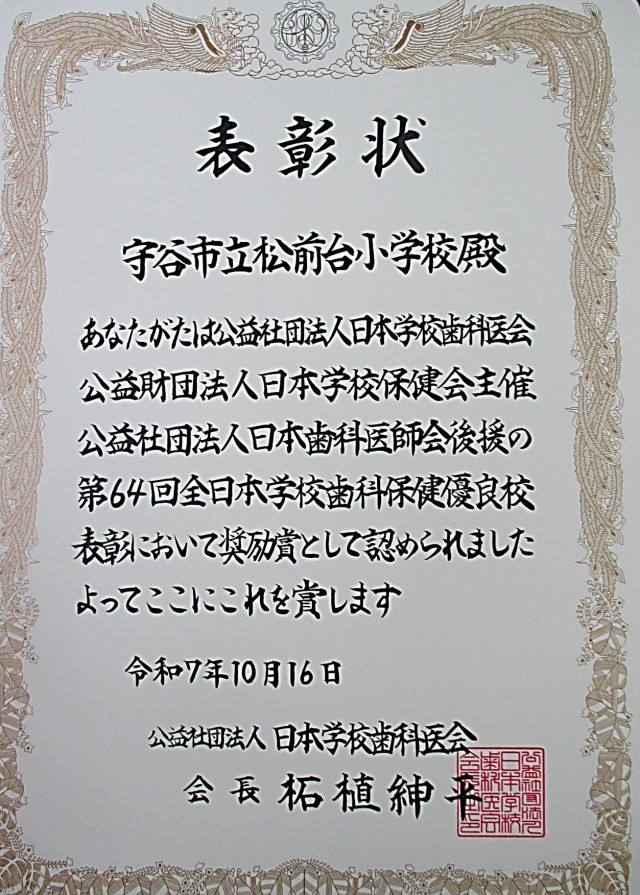 表彰状
守谷市立松前台小学校殿
あなたがたは公益社団法人日本学校歯科医会
公益財団法人日本学校保健会主催
公益社団法人日本歯科医師会後援の
第64回全日本学校歯科保健優良校
表彰において奨励賞として認められました
よってここにこれを賞します
令和7年10月16日
公益社団法人 日本学校歯科医会
会長 柘植紳平